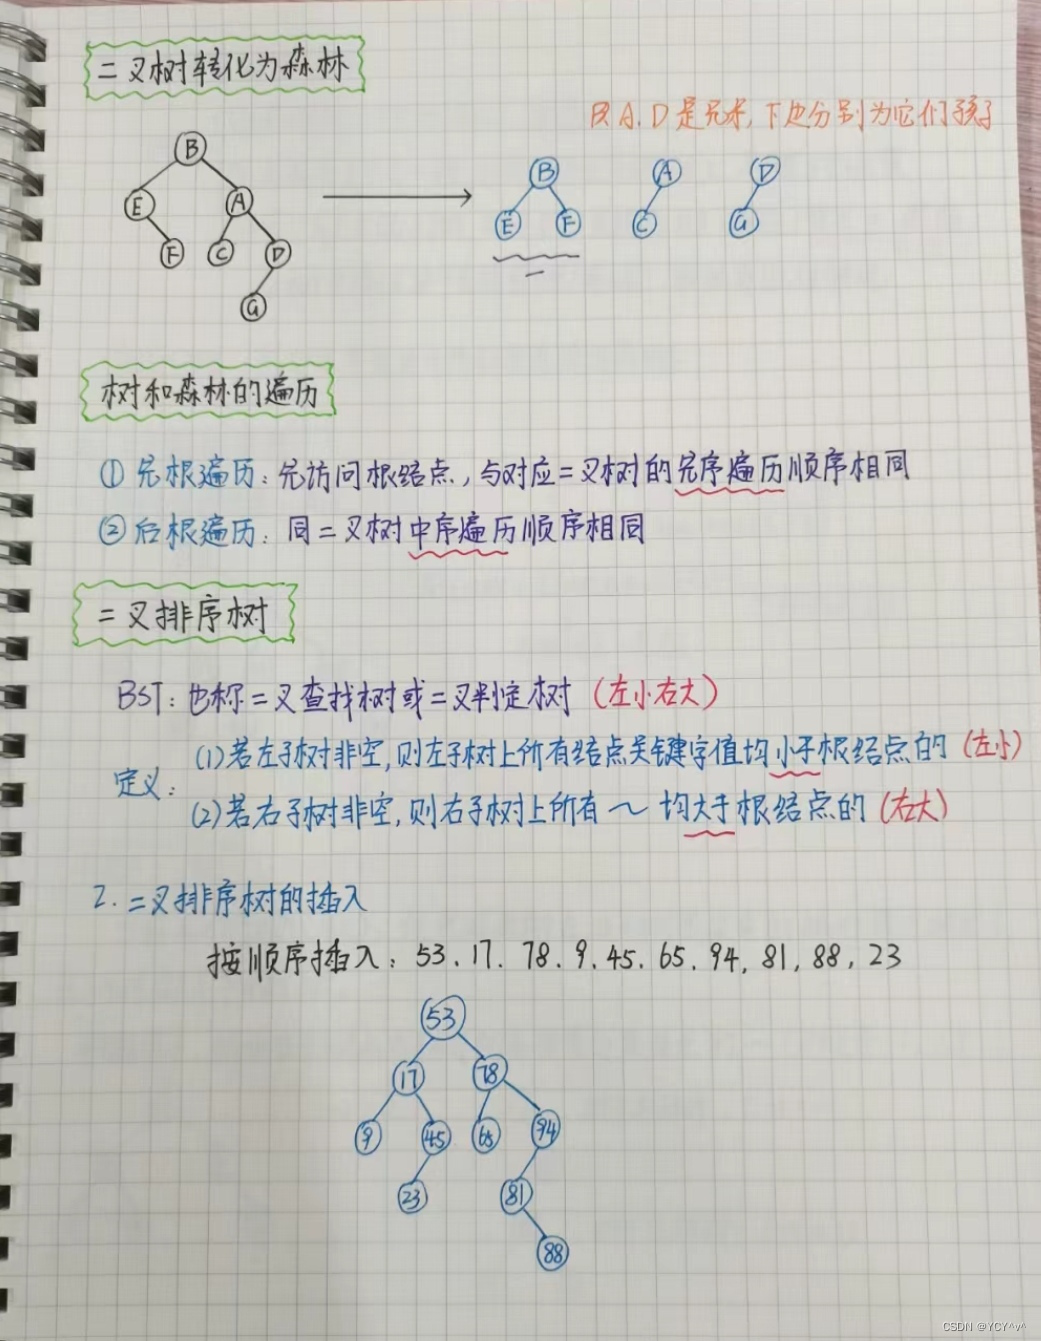 二叉树转化为森林
B、A、D是兄弟,下边分别为它们孩子
B
E A
F C D
G
B A D
E F C G
一
树和森林的遍历
① 先根遍历:先访问根结点,与对应二叉树的先序遍历顺序相同
② 后根遍历:同二叉树中序遍历顺序相同
二叉排序树
BST:也称二叉查找树或二叉判定树(左小右大)
定义:
(1)若左子树非空,则左子树上所有结点关键字值均小于根结点的(左小)
(2)若右子树非空,则右子树上所有～均大于根结点的(右大)
2.二叉排序树的插入
按顺序插入:53、17、78、9、45、65、94,81,88,23
53
17 78
9 45 65 94
23 81
88
CSDN @YCY^v^